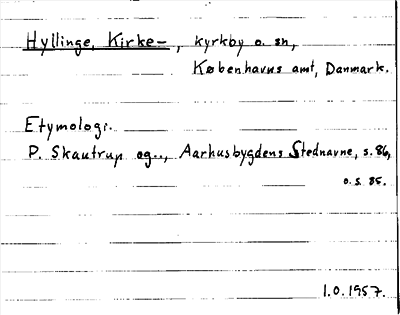 Hyllinge, Kirke-, kyrkby o. sn,
Københavns amt, Danmark.
Etymologi.
P. Skautrup og.., Aarhusbygdens Stednavne, s. 86,
o. s. 85.
I.O. 1957.